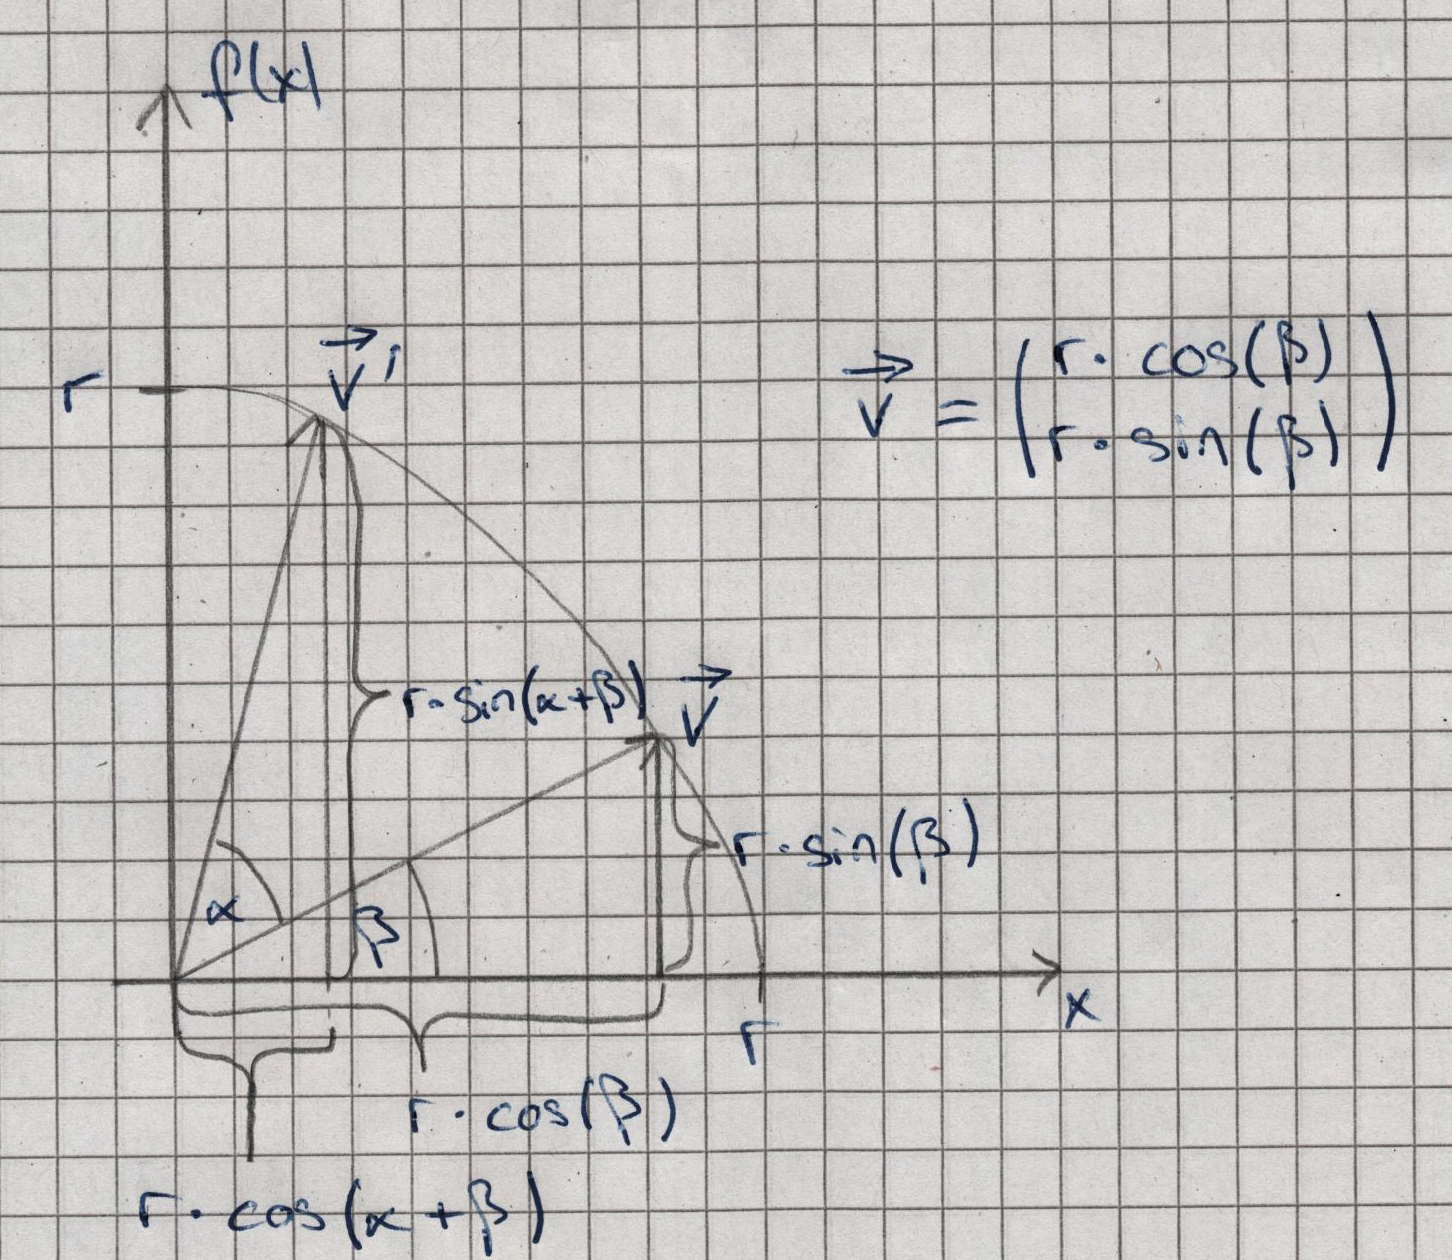 f(x)
r
v⃗'
v⃗ = (r · cos(β)
r · sin(β))
r · sin(α+β)
v⃗
r · sin(β)
α
β
x
r
r · cos(β)
r · cos(α+β)